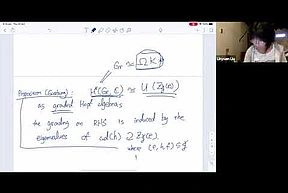 Gr ≃ ΩK
Theorem (Ginzburg): H*(Gr, ℂ) ≃ U(Zg(e))
as graded Hopf algebras
the grading on RHS is induced by the
eigenvalues of ad(h) ⊇ Zg(e),
where (e, h, f) ⊆ g